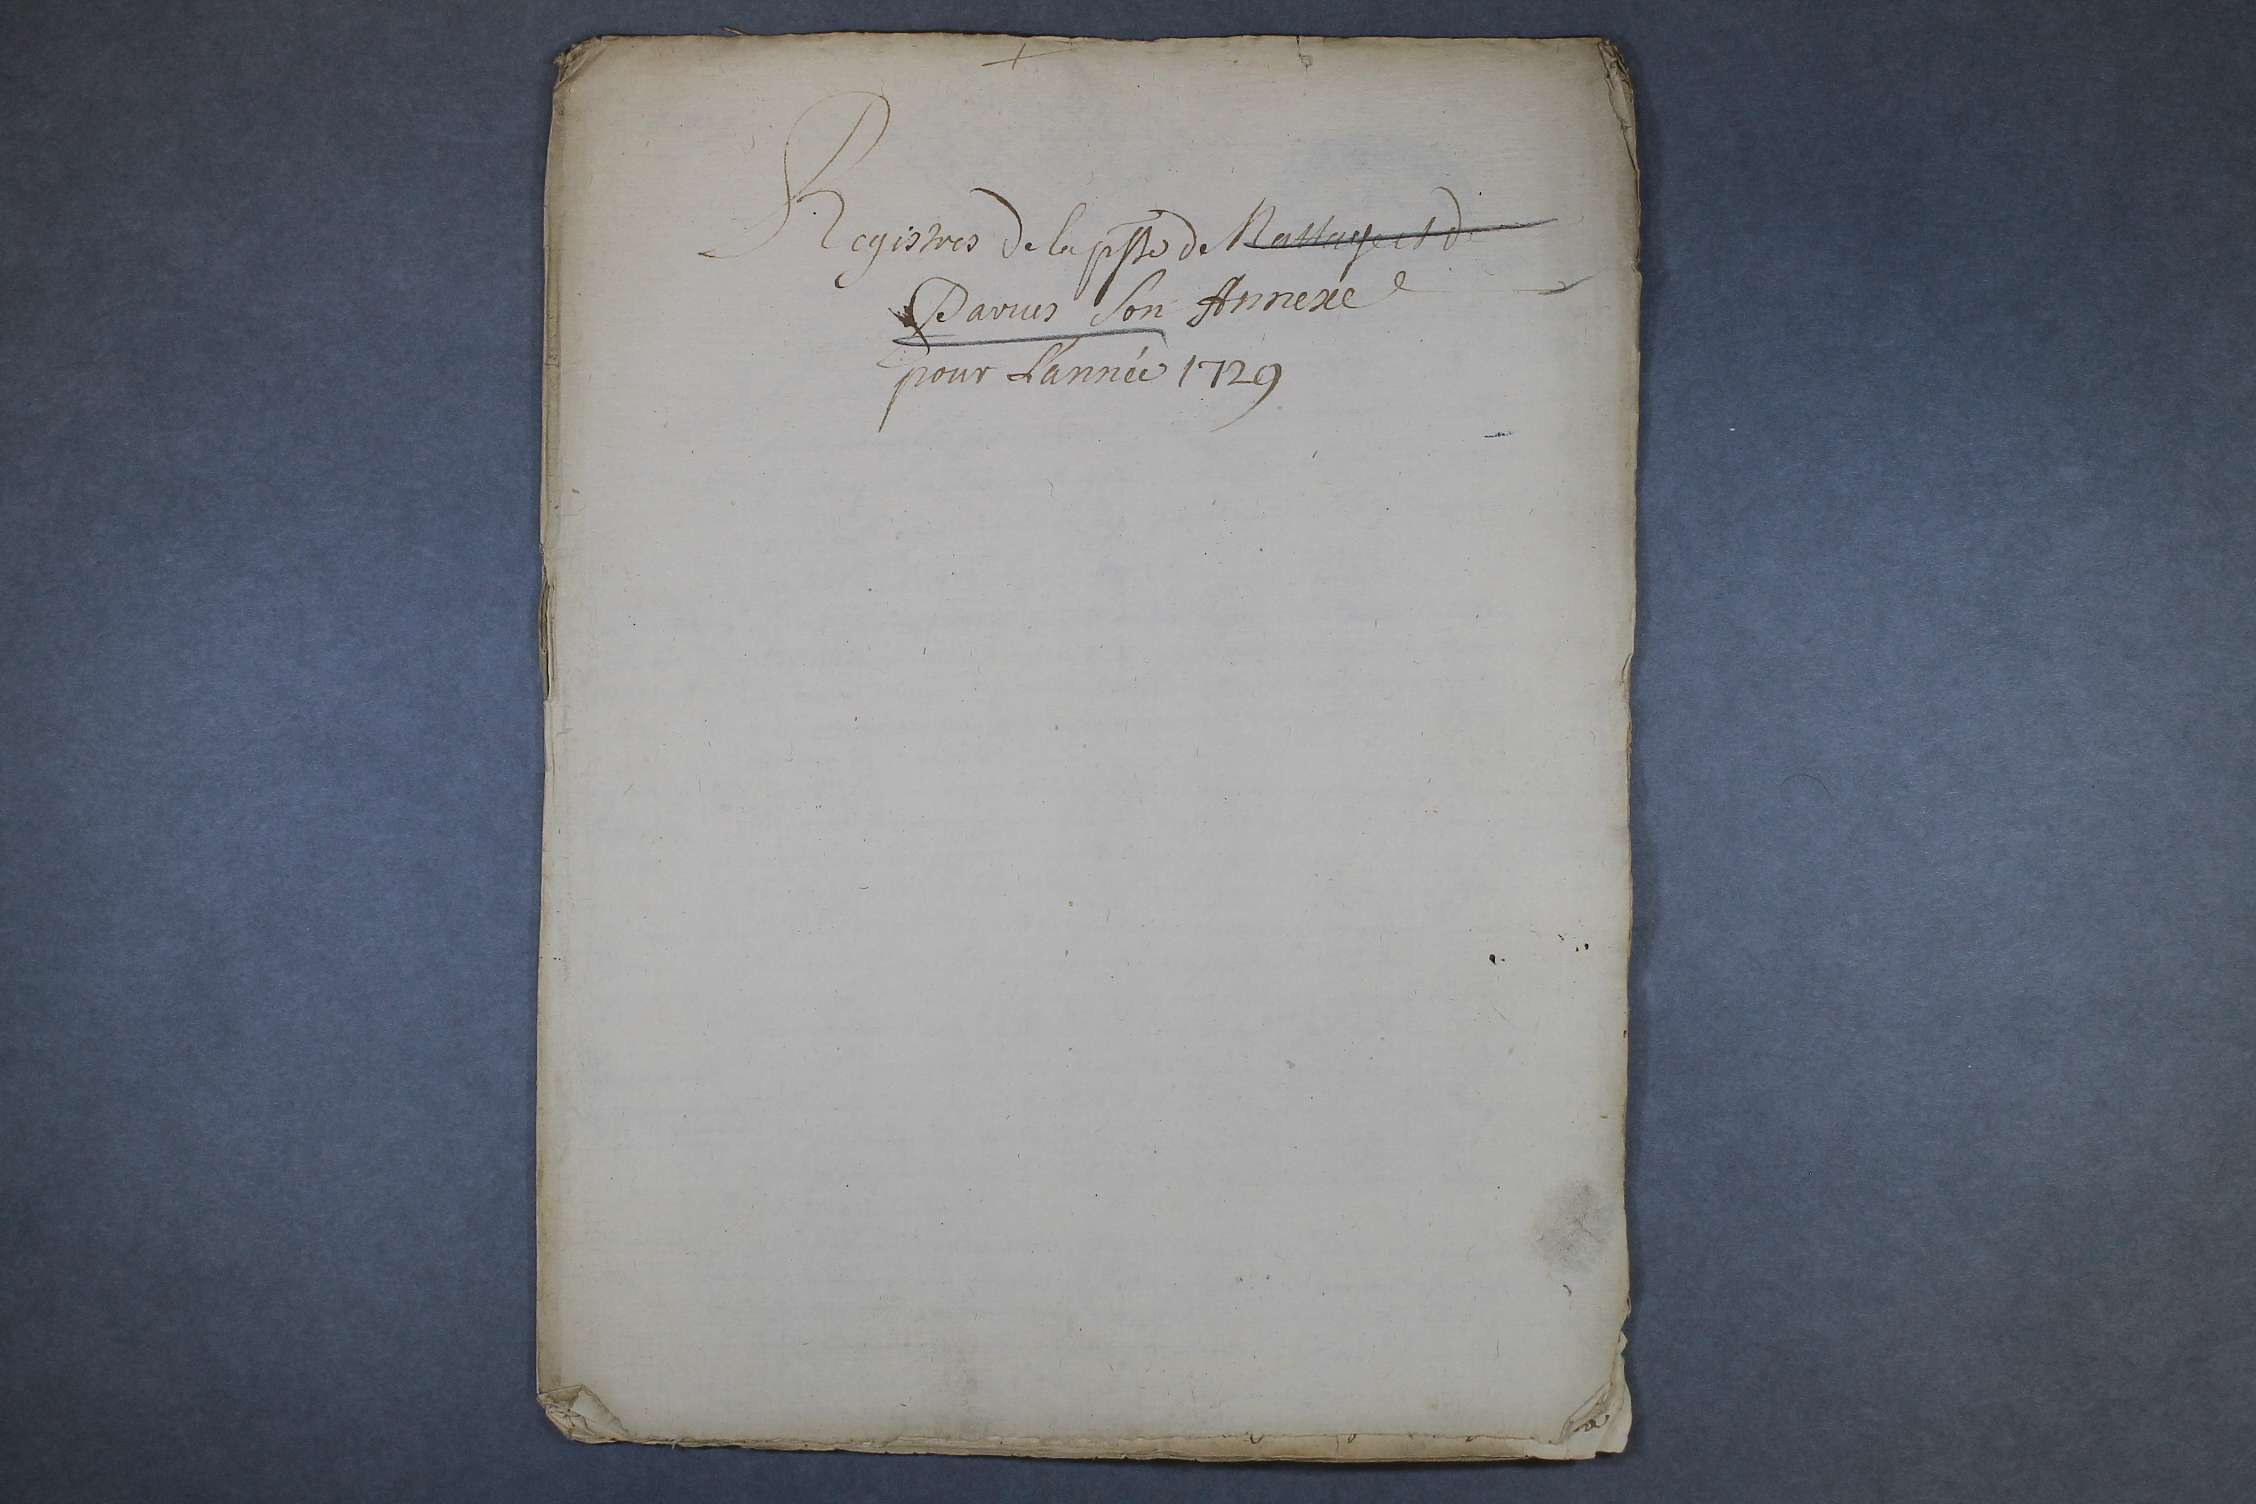 Registres de la psse de Nattages et de
Parves Son Annexe
pour L'année 1729